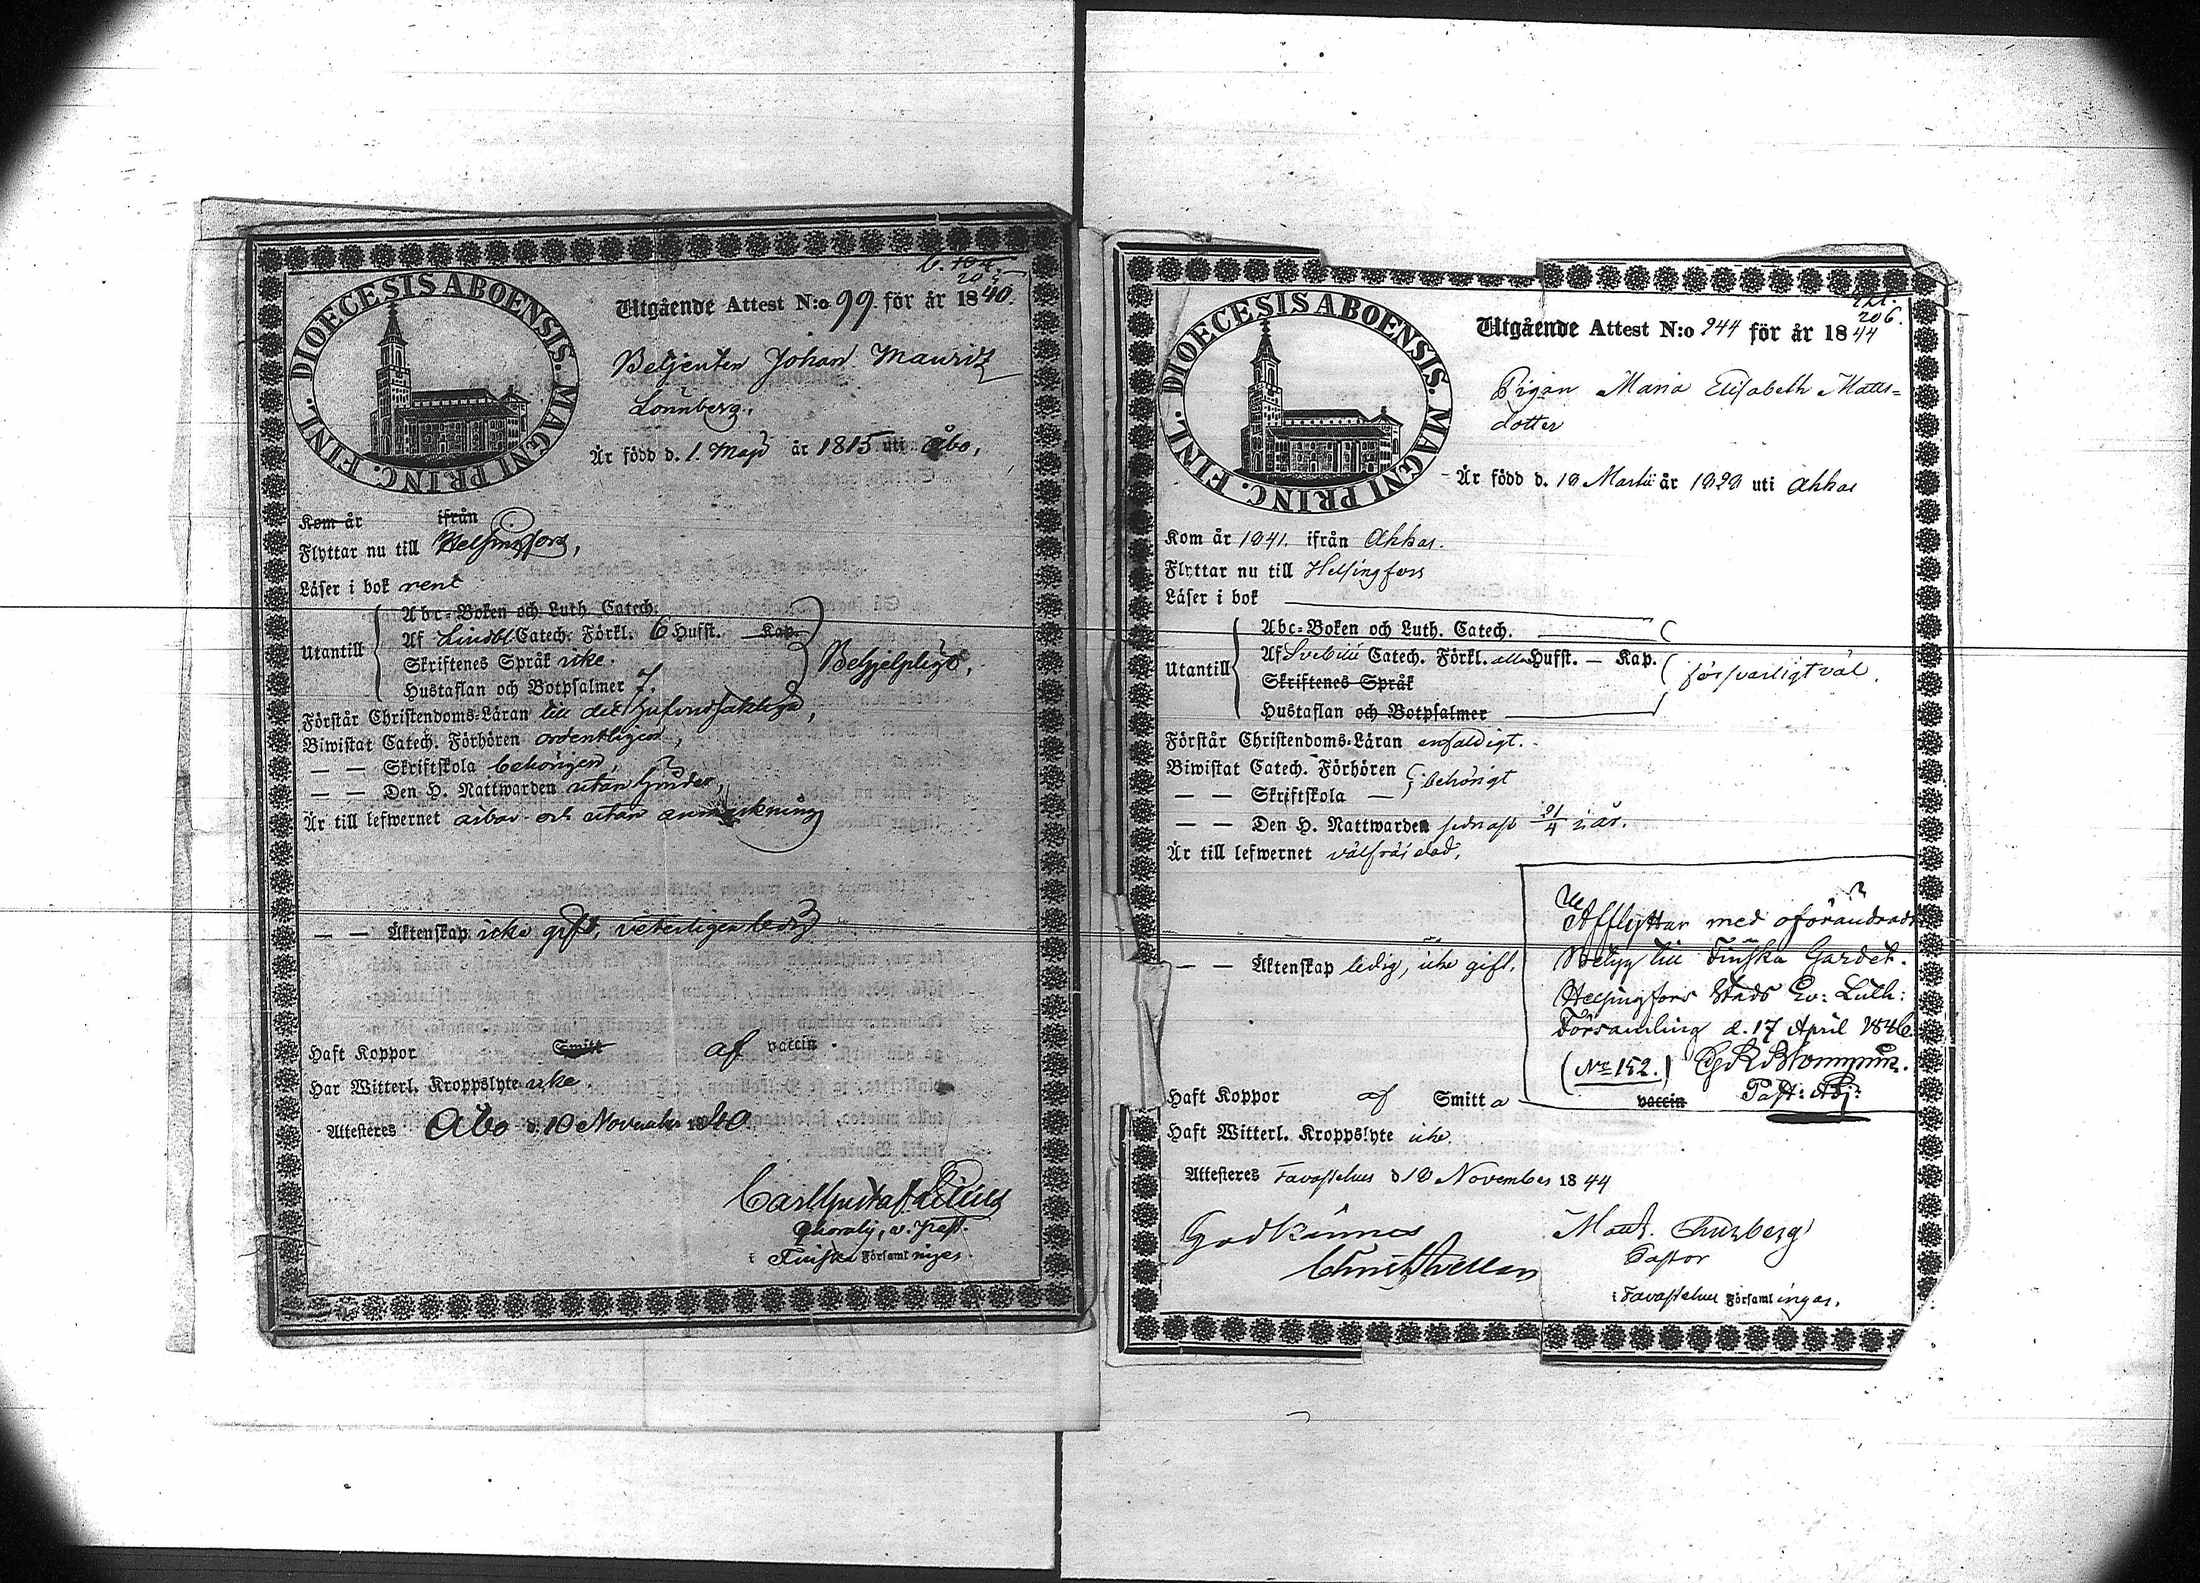 DIOECESIS ABOENSIS. MAGNI PRINC. FINL.
205
Utgående Attest N:o 99 för år 1840.
Betjenten Johan Mauritz
Lönnberg,
Är född d. 1. Maji år 1815 uti Åbo,
Kom år ifrån
Flyttar nu till Helsingfors,
Läser i bok rent
Utantill
Abc-Boken och Luth. Catech.
Af Lindbl. Catech. Förkl. 6 Hufst. — Kap.
Skriftenes Språk icke.
Hustaflan och Botpsalmer 7.
Behjelpligt,
Förstår Christendoms-Läran till det hufvudsakliga,
Biwistat Catech. Förhören ordentligen,
— — Skriftskola behörigen,
— — Den H. Nattwarden utan hinder,
Är till lefwernet ärbar och utan anmärkning
— — Äktenskap icke gift, veterligen ledig
Haft Koppor Smitt af vaccin
Har Witterl. Kroppslyte icke
Attesteres Åbo d. 10 November 1840
Carl Gustaf
v. Past.
i Finska Församlingen.
DIOECESIS ABOENSIS. MAGNI PRINC. FINL.
206.
Utgående Attest N:o 244 för år 1844
Pigan Maria Elisabeth Matts-
dotter
Är född d. 18 Martii år 1828 uti Akkas
Kom år 1841. ifrån Akkas.
Flyttar nu till Helsingfors
Läser i bok
Utantill
Abc-Boken och Luth. Catech.
Af Svebilii Catech. Förkl. alla Hufst. — Kap.
Skriftenes Språk
Hustaflan och Botpsalmer
försvarligt väl.
Förstår Christendoms-Läran enfaldigt.
Biwistat Catech. Förhören
— — Skriftskola —
behörigt
— — Den H. Nattwarden sednast 21/4 i år.
Är till lefwernet välfräjdad,
— — Äktenskap ledig, icke gift.
Afflyttar med oförändradt
Betyg till Finska Gardet.
Helsingfors Stads Ev: Luth:
Församling d. 17 April 1846
(No 152.)
Past: Adj:
Haft Koppor af Smitta vaccin
Haft Witterl. Kroppslyte icke.
Attesteres Tavastehus d 18 November 1844
Godkännes
Matt. Thurberg
Pastor
i Tavastehus Församlingar.